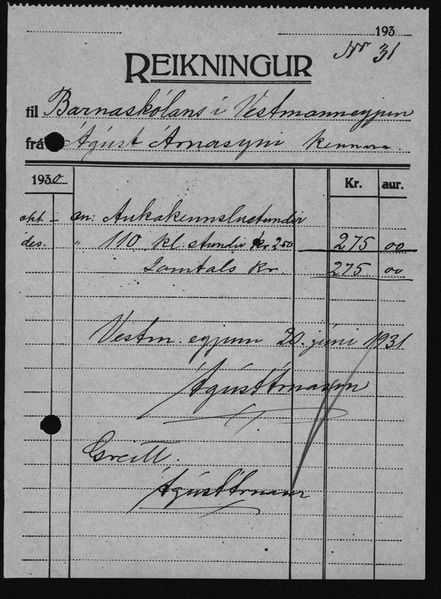 193
Nr 31
REIKNINGUR
til Barnaskólans í Vestmannaeyjum
frá Ágúst Árnasyni kennara
1930 Kr. aur.
okt - an: Aukakennslustundir
des. " 110 kl. stundir kr 2.50 275 00
Samtals Kr. 275 00
Vestm.eyjum 20. júní 1931
Ágúst Árnason
Greitt.
Ágúst Árnason